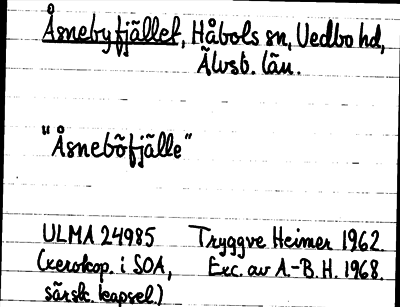 Åsnebyfjället, Håbols sn, Vedbo hd,
Älvsb. län.
"Åsneböfjälle"
ULMA 24985 Tryggve Heimer 1962.
(xerokop. i SOA, Exc. av A.-B. H. 1968.
särsk. kapsel.)